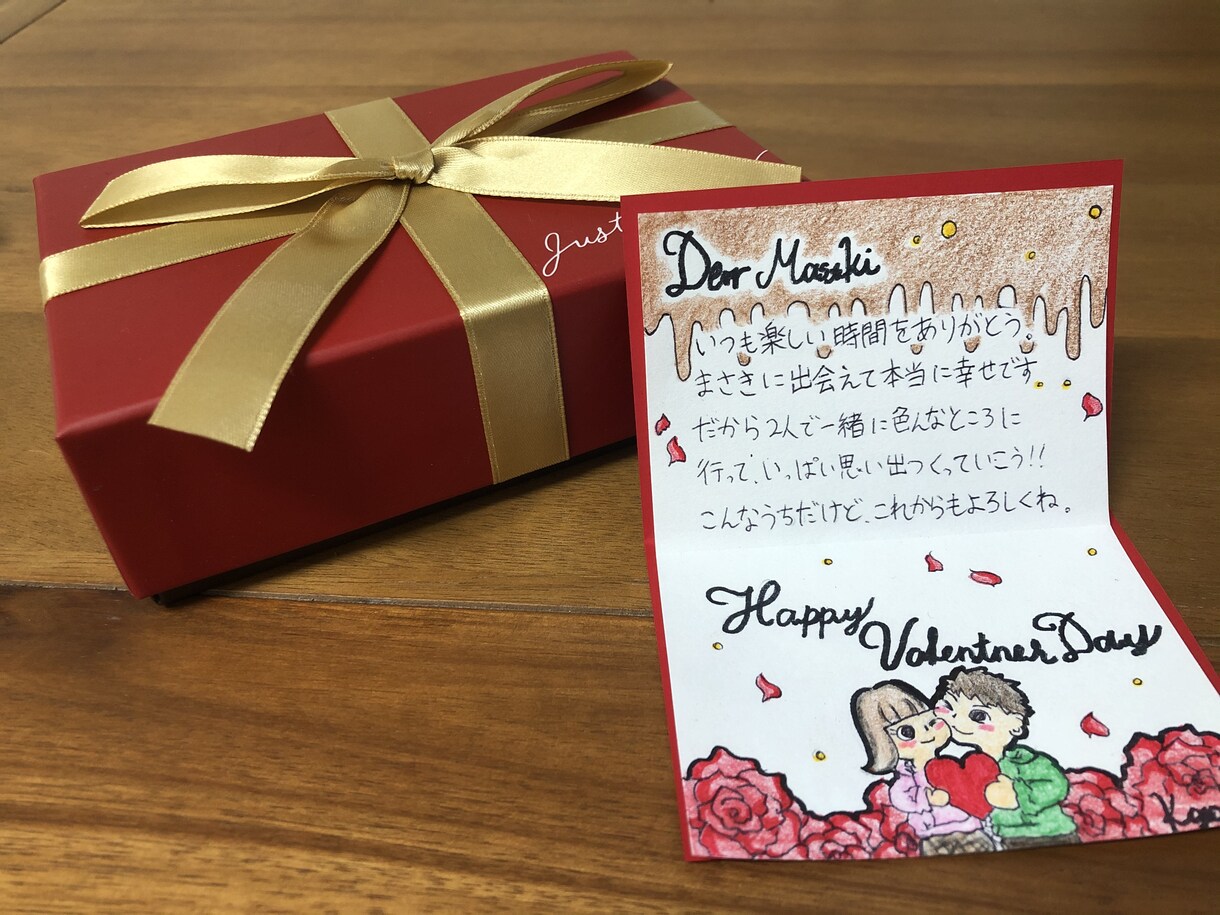 Just
Dear Masaki
いつも楽しい時間をありがとう。
まさきに出会えて本当に幸せです
だから2人で一緒に色んなところに
行って、いっぱい思い出つくっていこう!!
こんなうちだけど、これからもよろしくね。
Happy
Valentines Day